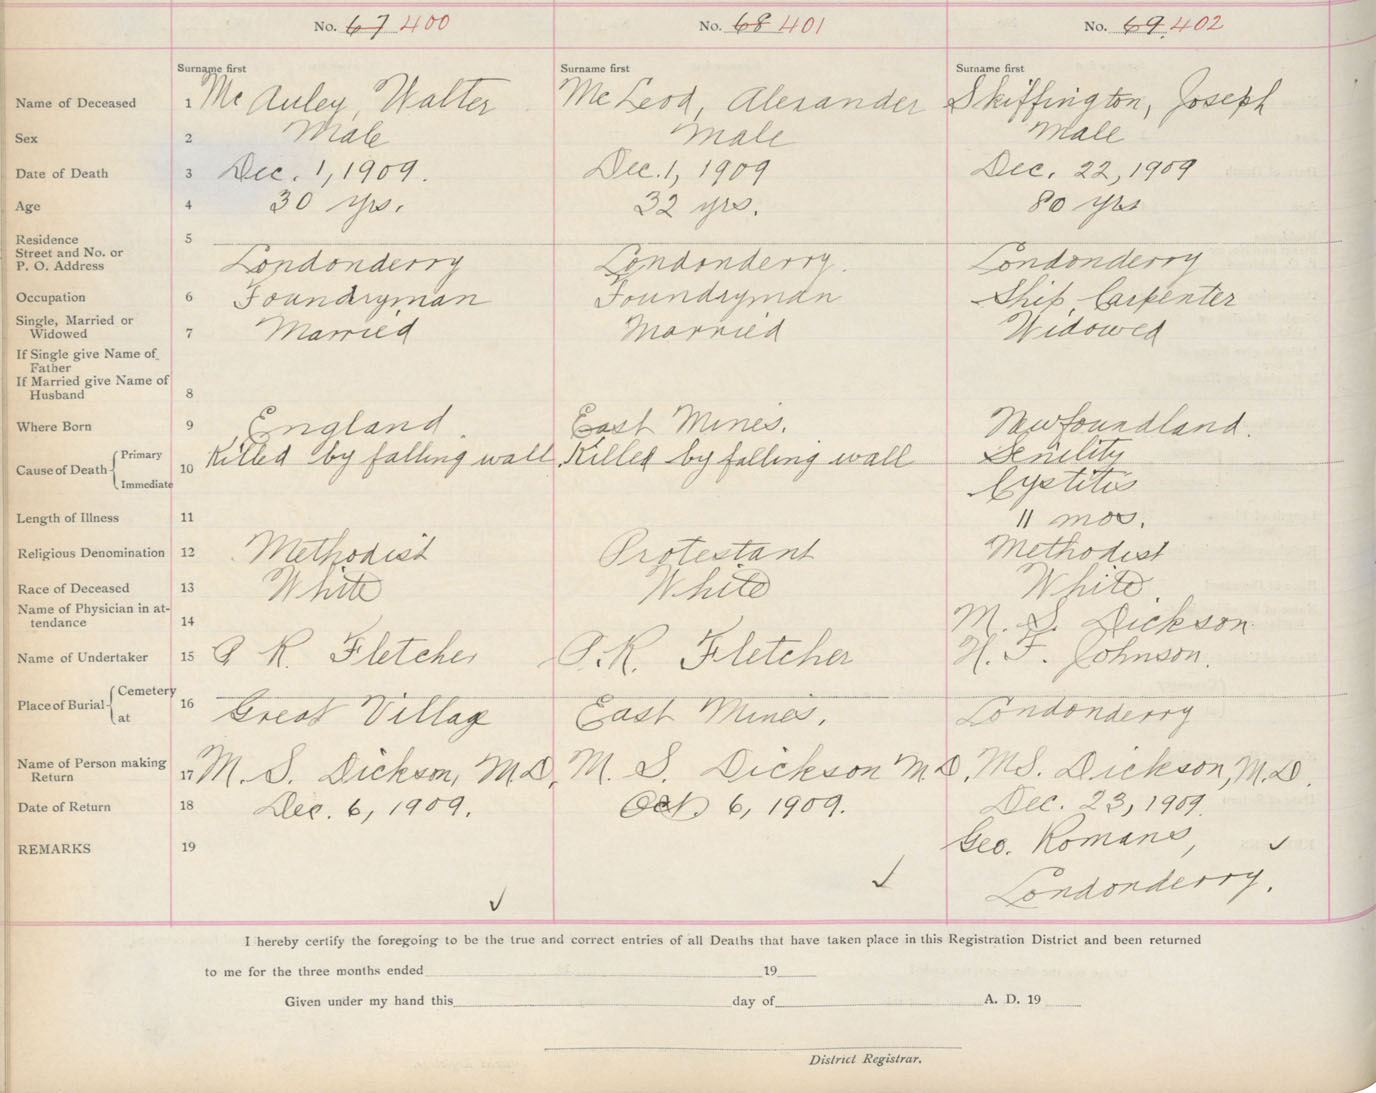 No. 67 400 No. 68 401 No. 69. 402
Surname first Surname first Surname first
Name of Deceased 1 Mc Auley, Walter Mc Leod, Alexander Skiffington, Joseph
Sex 2 Male Male Male
Date of Death 3 Dec. 1, 1909. Dec. 1, 1909 Dec. 22, 1909
Age 4 30 yrs. 32 yrs. 80 yrs
Residence 5
Street and No. or
P. O. Address Londonderry Londonderry. Londonderry
Occupation 6 Foundryman Foundryman Ship Carpenter
Single, Married or
Widowed 7 Married Married Widowed
If Single give Name of
Father
If Married give Name of
Husband 8
Where Born 9 England. East Mines. Newfoundland.
Cause of Death { Primary 10 Killed by falling wall Killed by falling wall Senility
Immediate Cystitis
Length of Illness 11 11 mos.
Religious Denomination 12 Methodist Protestant Methodist
Race of Deceased 13 White White White.
Name of Physician in at-
tendance 14 M. S. Dickson.
Name of Undertaker 15 A R. Fletcher A. R. Fletcher H. F. Johnson.
Place of Burial { Cemetery 16
at Great Village East Mines. Londonderry
Name of Person making
Return 17 M. S. Dickson, M.D. M. S. Dickson M.D. M S. Dickson, M.D.
Date of Return 18 Dec. 6, 1909. Oct. 6, 1909. Dec. 23, 1909.
REMARKS 19 Geo. Romans,
Londonderry.
I hereby certify the foregoing to be the true and correct entries of all Deaths that have taken place in this Registration District and been returned
to me for the three months ended 19
Given under my hand this day of A. D. 19
District Registrar.